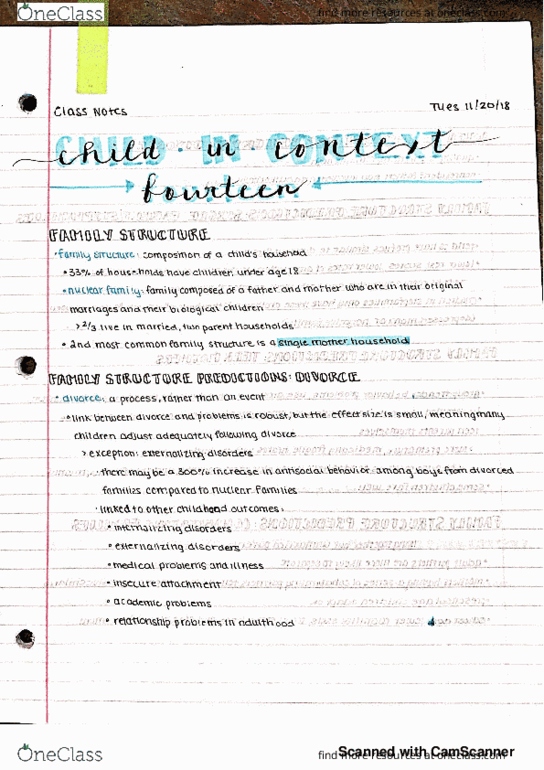 OneClass
find more resources at oneclass.com
Class Notes
Tues 11/20/18
CHILD IN CONTEXT
child in context
fourteen
FAMILY STRUCTURE
• family structure: composition of a child's household
• 33% of households have children under age 18
• nuclear family: family composed of a father and mother who are in their original
marriages and their biological children
> 2/3 live in married, two parent households
• 2nd most common family structure is a single mother household
FAMILY STRUCTURE PREDICTIONS: DIVORCE
• divorce: a process, rather than an event
• link between divorce and problems is robust, but the effect size is small, meaning many
children adjust adequately following divorce
> exception: externalizing disorders
there may be a 300% increase in antisocial behavior among boys from divorced
families compared to nuclear families
· linked to other childhood outcomes:
• internalizing disorders
• externalizing disorders
• medical problems and illness
• insecure attachment
• academic problems
• relationship problems in adulthood
OneClass
find more resources at oneclass.com
Scanned with CamScanner